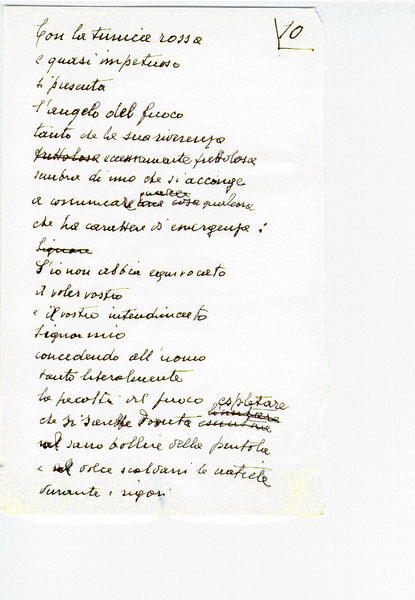 10
Con la tunica rossa
e quasi impetuoso
si presenta
l'angelo del fuoco
tanto che la sua riverenza
frettolosa eccessivamente frettolosa
sembra di uno che si accinge
a comunicare qualcosa
che ha carattere di emergenza:
Signore
S'io non abbia equivocato
il voler vostro
e il vostro intendimento
Signor mio
concedendo all'uomo
tanto liberalmente
la facoltà del fuoco espletare
che si sarebbe dovuta
nel sano bollire della pentola
e nel dolce scaldarsi le natiche
durante i rigori